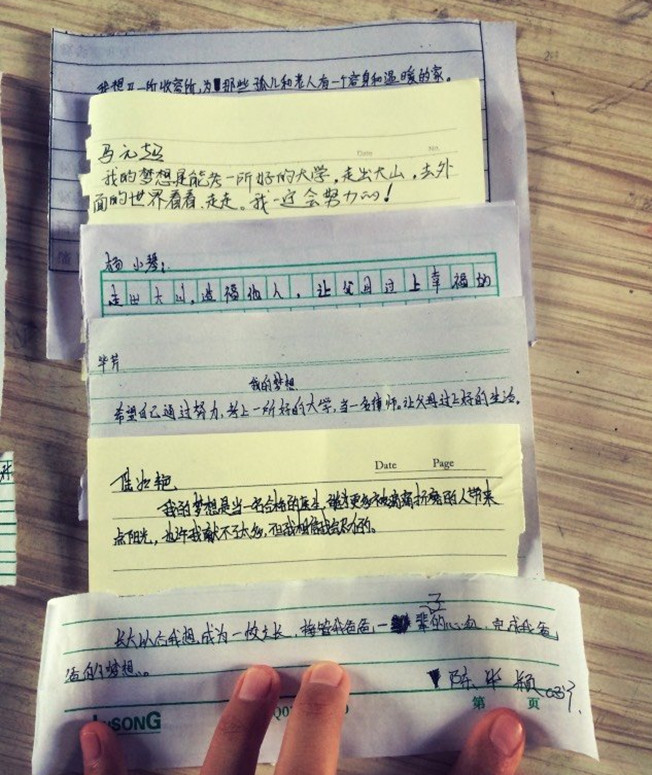 我想开一所收容所,为那些孤儿和老人有一个容身和温暖的家。
Date No.
马元超
我的梦想是能考一所好的大学,走出大山,去外
面的世界看看,走走。我一定会努力的!
杨小琴:
走出大山,造福他人,让父母过上幸福的
毕芹
我的梦想
希望自己通过努力,考上一所好的大学,当一名律师。让父母过上好的生活。
Date Page
我的梦想是当一名合格的医生,能为更多被病痛折磨的人带来
点阳光,也许我献不了太多,但我相信我会尽力的。
长大以后我想成为一校之长,接管我爸爸,一辈子的心血,完成我爸
爸的梦想。
陈毕颖
第 页
SONG